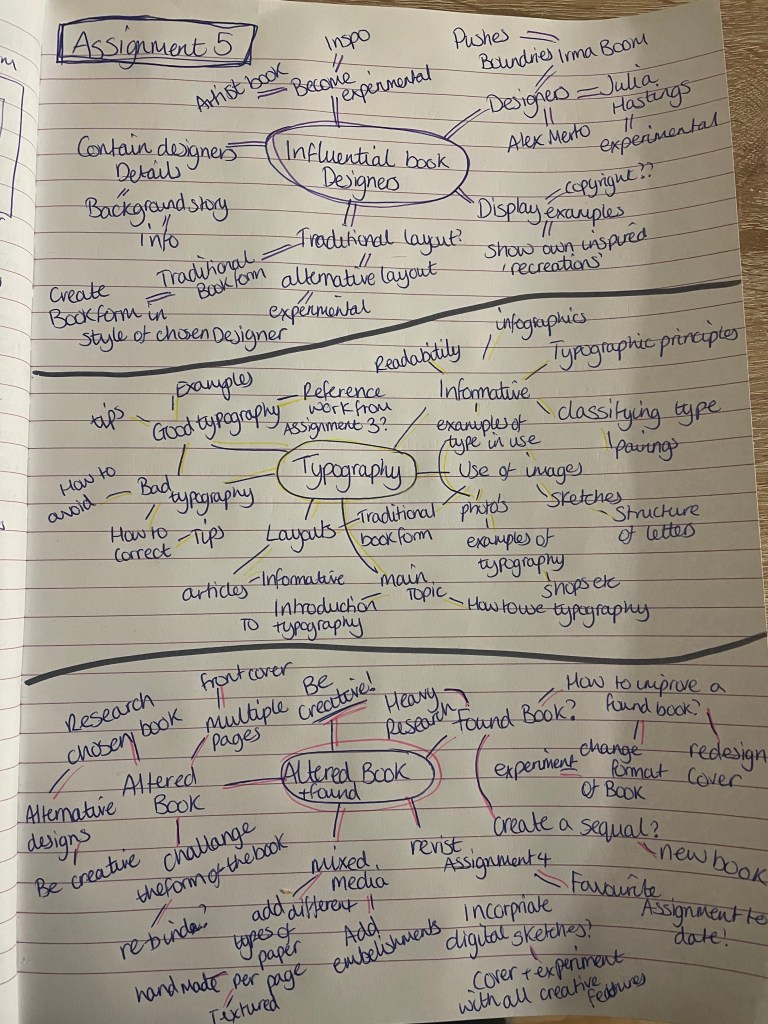 Assignment 5
Inspo
Artist book
Become
experimental
Pushes
Boundries
Irma Boom
Designers
Julia
Hastings
experimental
Alex Merto
Influential book
Designers
Contain designers
Details
Background story
info
copyright??
Display examples
show own inspired
'recreations'
Traditional layout?
alternative layout
experimental
Traditional
Book form
Create
Bookform in
style of chosen Designer
infographics
Readability
Typographic principles
Informative
classifying type
pairings
Examples
tips
Good typography
Reference
work from
Assignment 3?
examples of
type in use
Typography
Use of images
Sketches
Structure
of letters
photos
examples of
typography
shops etc
How to
avoid
Bad
typography
How to
correct
Tips
Layouts
Traditional
book form
articles
Informative
main
Topic
Introduction
To typography
How to use typography
front cover
Research
chosen book
multiple
pages
Be
creative!
Heavy
Research
found Book?
How to improve a
found book?
redesign
cover
change
format
of Book
experiment
Altered Book
+ found
Altered
Book
Alternative
designs
Be creative
challange
the form of the book
rebinding?
create a sequal?
new book
mixed
media
revist
Assignment 4
Favourite
Assignment to
date!
add different
types of
paper
per page
handmade
Textured
Add
embelishments
Incorpriate
digital sketches?
Cover + experiment
with all creative
features